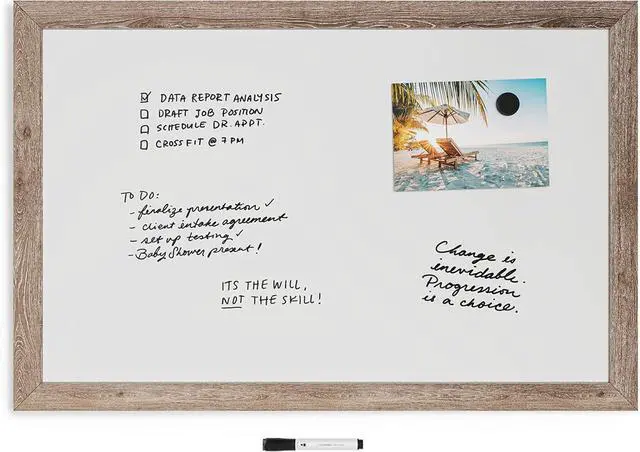 DATA REPORT ANALYSIS
DRAFT JOB POSITION
SCHEDULE DR. APPT.
CROSSFIT @ 7 PM
TO DO:
- finalize presentation ✓
- client intake agreement
- set up testing ✓
- Baby Shower present!
ITS THE WILL,
NOT THE SKILL!
Change is
inevidable.
Progression
is a choice.